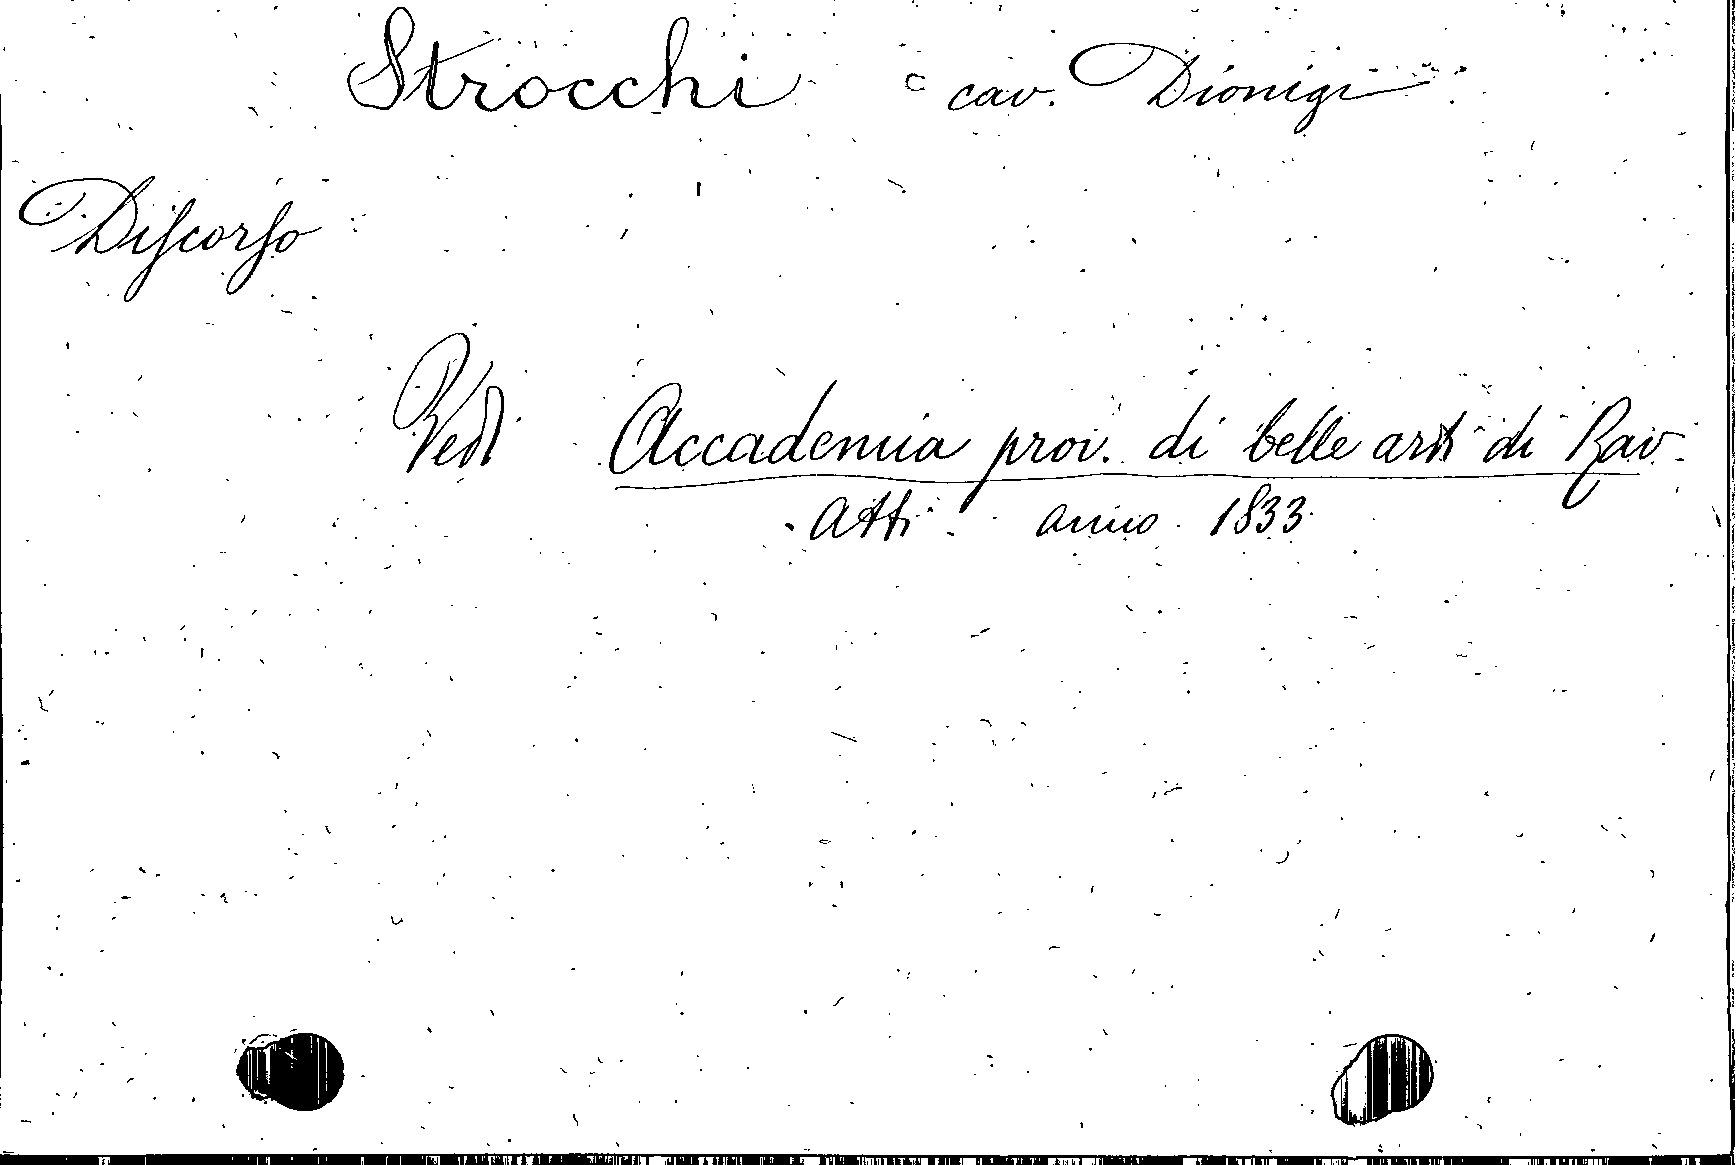 Strocchi cav. Dionigi
Diſcorſo
Vedi Accademia prov. di belle arti di Rav.
Atti anno 1833